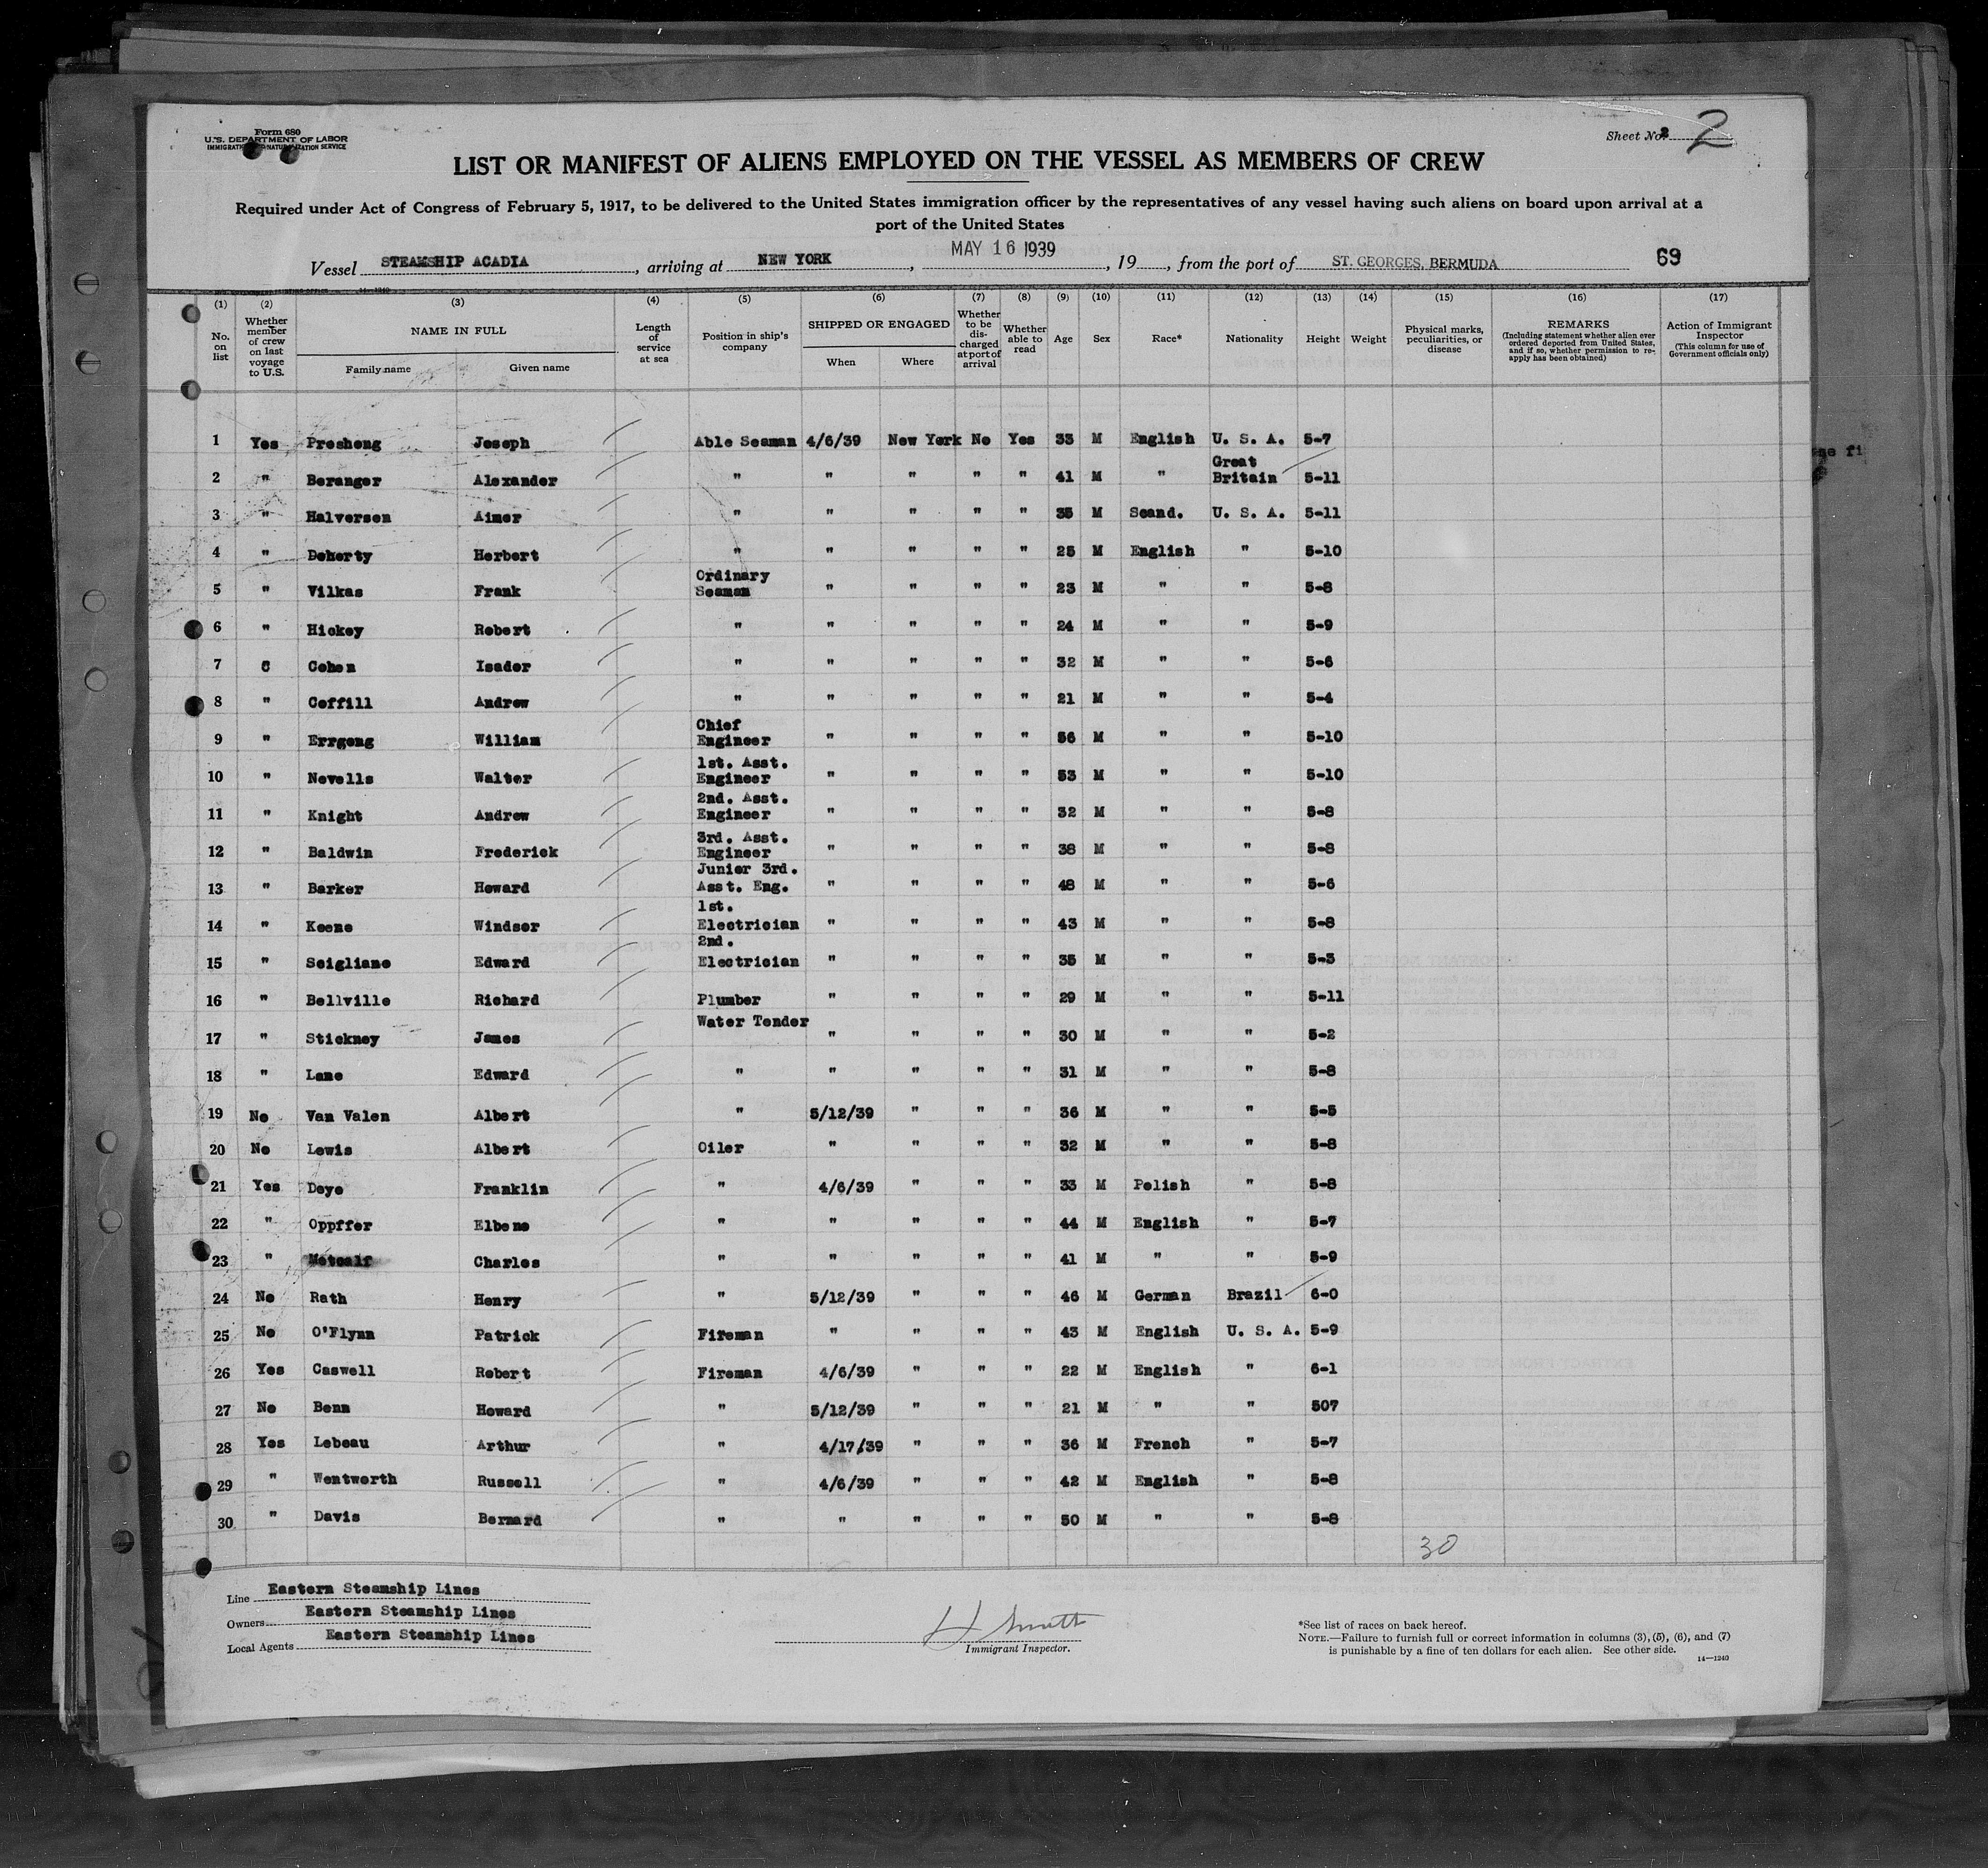 Form 680
U. S. DEPARTMENT OF LABOR
IMMIGRATION AND NATURALIZATION SERVICE
Sheet No. 2
LIST OR MANIFEST OF ALIENS EMPLOYED ON THE VESSEL AS MEMBERS OF CREW
Required under Act of Congress of February 5, 1917, to be delivered to the United States immigration officer by the representatives of any vessel having such aliens on board upon arrival at a
port of the United States
Vessel STEAMSHIP ACADIA, arriving at NEW YORK, MAY 16 1939, 19, from the port of ST. GEORGES, BERMUDA 69
(1) (2) (3) (4) (5) (6) (7) (8) (9) (10) (11) (12) (13) (14) (15) (16) (17)
No. on list
Whether member of crew on last voyage to U.S.
NAME IN FULL
Family name Given name
Length of service at sea
Position in ship's company
SHIPPED OR ENGAGED
When Where
Whether to be discharged at port of arrival
Whether able to read
Age Sex Race* Nationality Height Weight
Physical marks, peculiarities, or disease
REMARKS
(Including statement whether alien ever ordered deported from United States, and if so, whether permission to re-apply has been obtained)
Action of Immigrant Inspector
(This column for use of Government officials only)
1 Yes Presheng Joseph Able Seaman 4/6/39 New York No Yes 33 M English U. S. A. 5-7
2 " Beranger Alexander " " " " " 41 M " Great Britain 5-11
3 " Halversen Aimer " " " " " 35 M Scand. U. S. A. 5-11
4 " Doherty Herbert " " " " " 25 M English " 5-10
5 " Vilkas Frank Ordinary Seaman " " " " 23 M " " 5-8
6 " Hickey Robert " " " " " 24 M " " 5-9
7 6 Cohen Isador " " " " " 32 M " " 5-6
8 " Coffill Andrew " " " " " 21 M " " 5-4
9 " Errgong William Chief Engineer " " " " 56 M " " 5-10
10 " Nevells Walter 1st. Asst. Engineer " " " " 53 M " " 5-10
11 " Knight Andrew 2nd. Asst. Engineer " " " " 32 M " " 5-8
12 " Baldwin Frederick 3rd. Asst. Engineer " " " " 38 M " " 5-8
13 " Barker Howard Junior 3rd. Asst. Eng. " " " " 48 M " " 5-6
14 " Keene Windsor 1st. Electrician " " " " 43 M " " 5-8
15 " Scigliano Edward 2nd. Electrician " " " " 35 M " " 5-3
16 " Bellville Richard Plumber " " " " 29 M " " 5-11
17 " Stickney James Water Tender " " " " 30 M " " 5-2
18 " Lane Edward " " " " " 31 M " " 5-8
19 No Van Valen Albert " 5/12/39 " " " 36 M " " 5-5
20 No Lewis Albert Oiler " " " " 32 M " " 5-8
21 Yes Doye Franklin " 4/6/39 " " " 33 M Polish " 5-8
22 " Oppffer Elbene " " " " " 44 M English " 5-7
23 " Metcalf Charles " " " " " 41 M " " 5-9
24 No Rath Henry " 5/12/39 " " " 46 M German Brazil 6-0
25 No O'Flynn Patrick Fireman " " " " 43 M English U. S. A. 5-9
26 Yes Caswell Robert Fireman 4/6/39 " " " 22 M English " 6-1
27 No Benn Howard " 5/12/39 " " " 21 M " " 507
28 Yes Lebeau Arthur " 4/17/39 " " " 36 M French " 5-7
29 " Wentworth Russell " 4/6/39 " " " 42 M English " 5-8
30 " Davis Bernard " " " " " 50 M " " 5-8
30
Line Eastern Steamship Lines
Owners Eastern Steamship Lines
Local Agents Eastern Steamship Lines
H Smith
Immigrant Inspector.
*See list of races on back hereof.
NOTE.—Failure to furnish full or correct information in columns (3), (5), (6), and (7)
is punishable by a fine of ten dollars for each alien. See other side.
14—1240